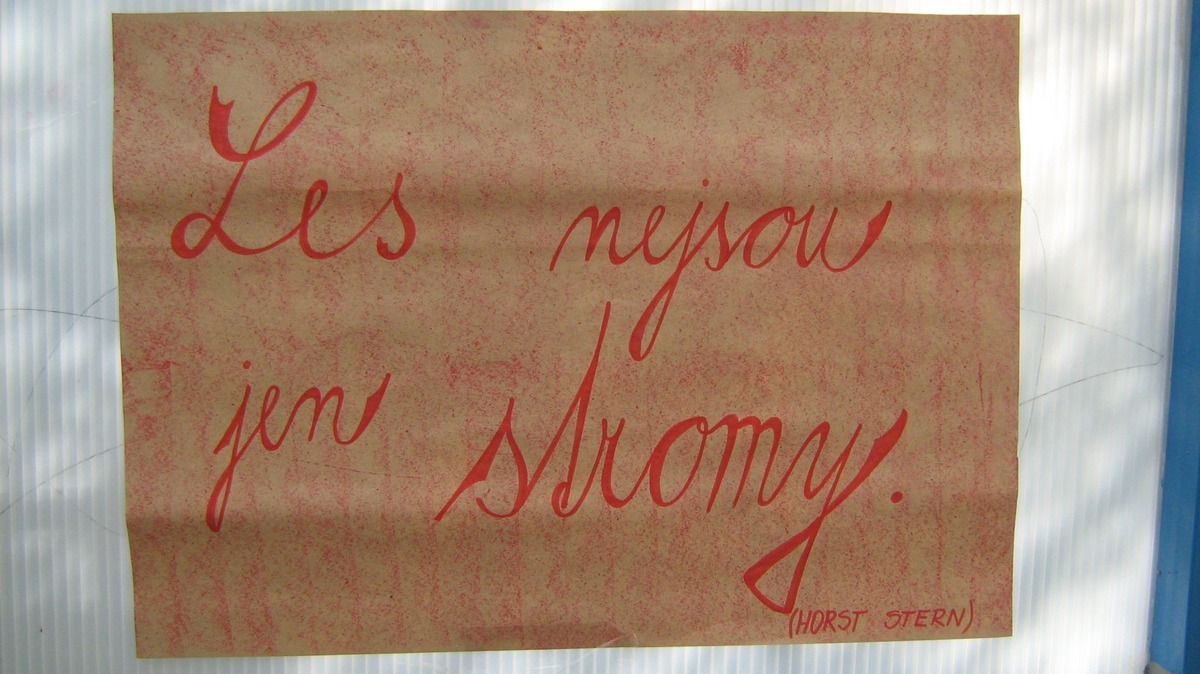 Les nejsou
jen stromy.
(HORST STERN)